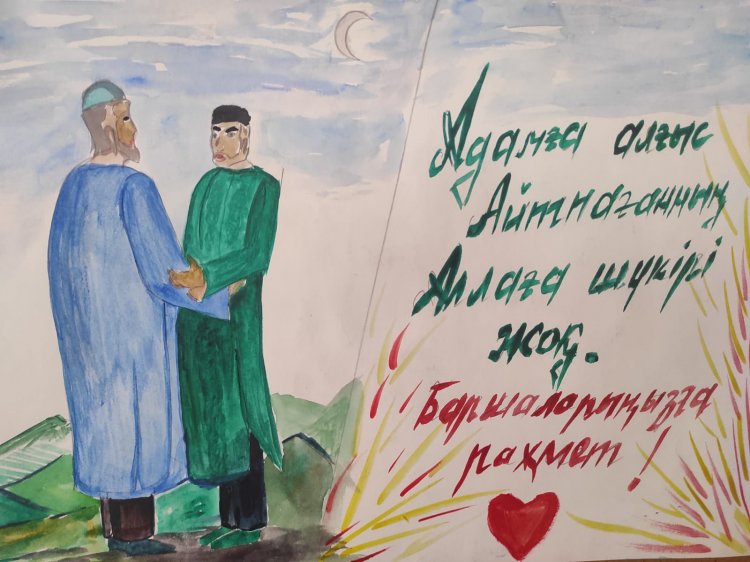 Адамға алғыс
Айтпағанның
Аллаға шүкірі
жоқ.
Баршаларыңызға
рахмет!